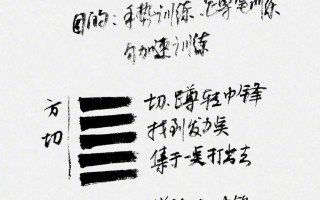 目的：手势训练、蹲笔训练
匀加速训练
方切
切、蹲转中锋
找到发力点
集于一点打出去